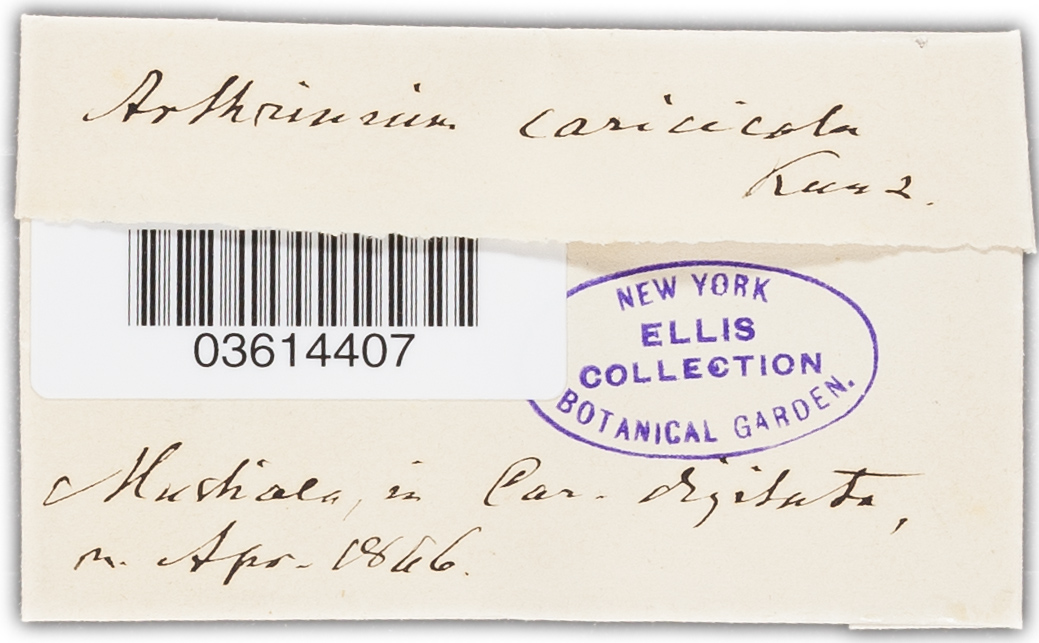 Arthrinium caricicola
Kunz.
03614407
NEW YORK
ELLIS
COLLECTION
BOTANICAL GARDEN.
Mustiala, in Car. digitata,
m. Apr. 1866.